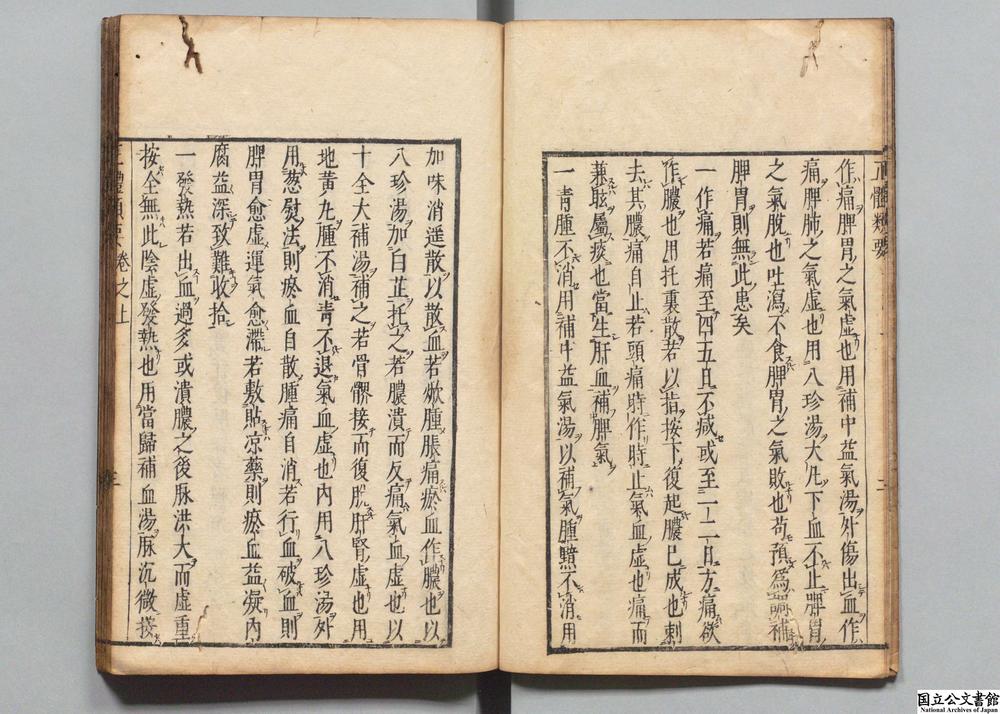 正體類要
三
作痛脾胃之氣虛也用補中益氣湯外傷出血作
痛脾肺之氣虛也用八珍湯大凡下血不止脾胃
之氣脫也吐瀉不食脾胃之氣敗也苟預爲調補
脾胃則無此患矣
一作痛若痛至四五日不減或至一二日方痛欲
作膿也用托裏散若以指按下復起膿已成也刺
去其膿痛自止若頭痛時作時止氣血虛也痛而
兼眩屬痰也當生肝血補脾氣
一青腫不消用補中益氣湯以補氣腫黯不消用
加味消遥散以散血若焮腫脹痛瘀血作膿也以
八珍湯加白芷托之若膿潰而反痛氣血虛也以
十全大補湯補之若骨髎接而復脫肝腎虛也用
地黃丸腫不消青不退氣血虛也內用八珍湯外
用葱熨法則瘀血自散腫痛自消若行血破血則
脾胃愈虛運氣愈滯若敷貼凉藥則瘀血益凝內
腐益深致難收拾
一發熱若出血過多或潰膿之後脉洪大而虛重
按全無此陰虛發熱也用當歸補血湯脉沉微按
正體類要卷之上
三
国立公文書館
National Archives of Japan